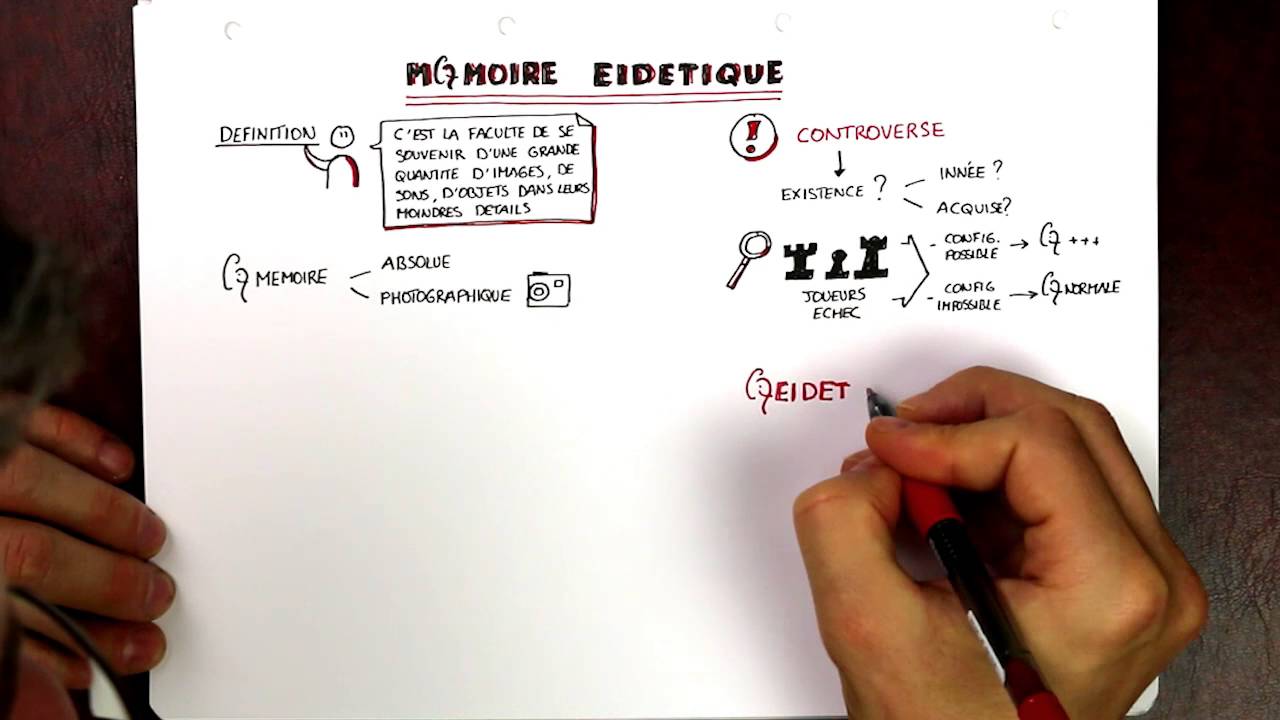 MÉMOIRE EIDETIQUE
DEFINITION
C'EST LA FACULTE DE SE
SOUVENIR D'UNE GRANDE
QUANTITE D'IMAGES, DE
SONS, D'OBJETS DANS LEURS
MOINDRES DETAILS
MEMOIRE
ABSOLUE
PHOTOGRAPHIQUE
!
CONTROVERSE
EXISTENCE ?
INNÉE ?
ACQUISE?
JOUEURS
ECHEC
- CONFIG.
POSSIBLE
→ +++
- CONFIG
IMPOSSIBLE
→ NORMALE
EIDET